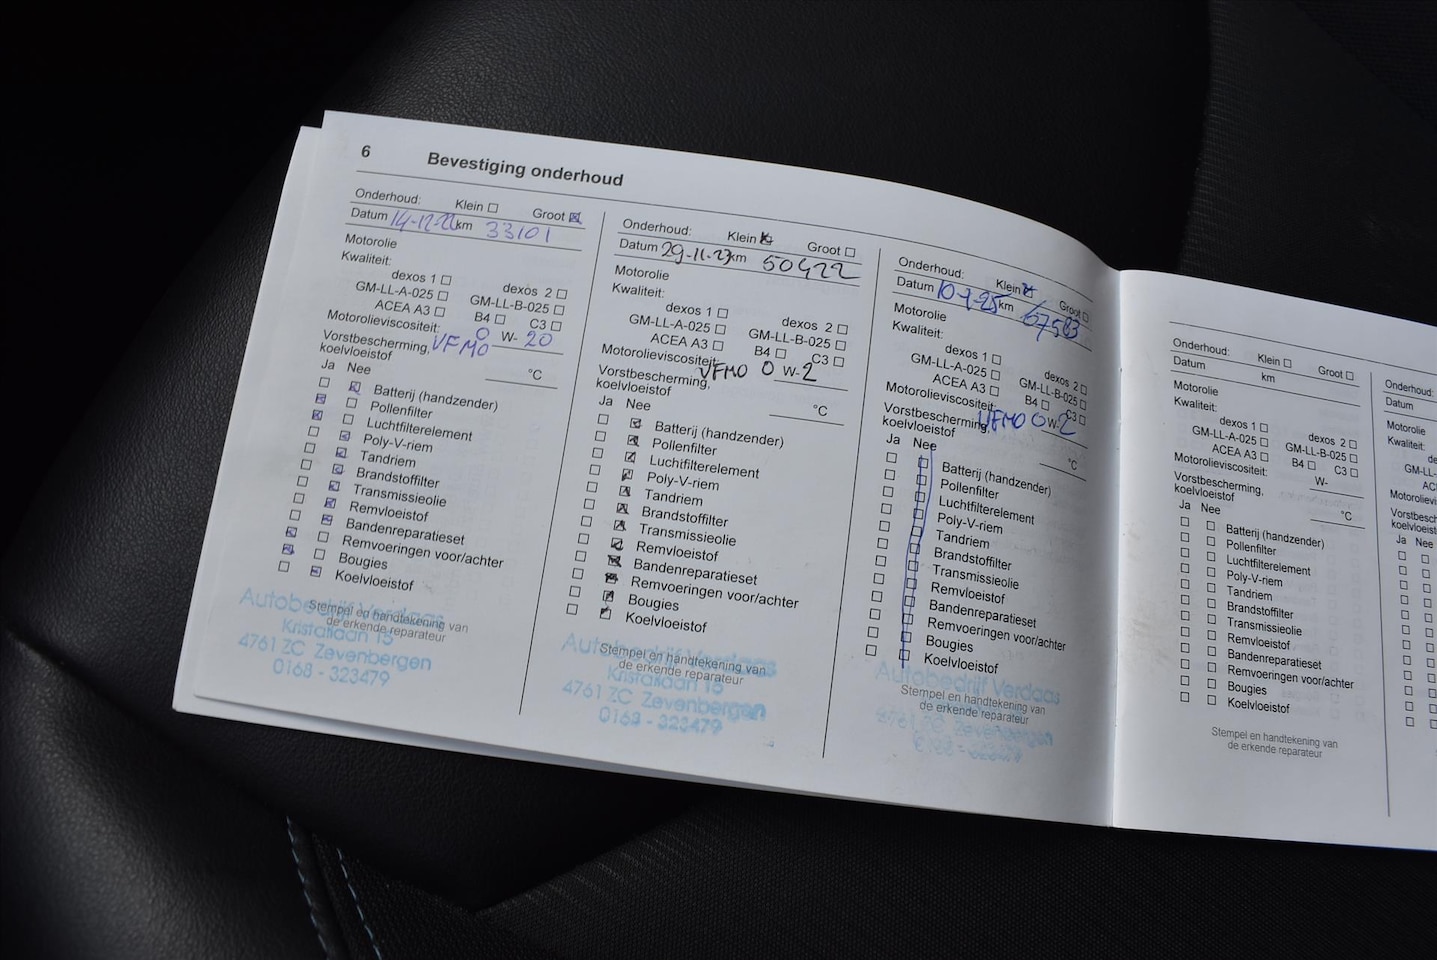 6 Bevestiging onderhoud
Onderhoud: Klein Groot
Datum 14-12-22 km 33101
Motorolie
Kwaliteit:
dexos 1 dexos 2
GM-LL-A-025 GM-LL-B-025
ACEA A3 B4 C3
Motorolieviscositeit: 0 W- 20
Vorstbescherming, VFMO
koelvloeistof °C
Ja Nee
Batterij (handzender)
Pollenfilter
Luchtfilterelement
Poly-V-riem
Tandriem
Brandstoffilter
Transmissieolie
Remvloeistof
Bandenreparatieset
Remvoeringen voor/achter
Bougies
Koelvloeistof
Stempel en handtekening van
de erkende reparateur
Autobedrijf Verdaas
Kristallaan 15
4761 ZC Zevenbergen
0168 - 323479
Onderhoud: Klein Groot
Datum 29-11-23 km 50422
Motorolie
Kwaliteit:
dexos 1 dexos 2
GM-LL-A-025 GM-LL-B-025
ACEA A3 B4 C3
Motorolieviscositeit: VFMO 0 W- 2
Vorstbescherming,
koelvloeistof °C
Ja Nee
Batterij (handzender)
Pollenfilter
Luchtfilterelement
Poly-V-riem
Tandriem
Brandstoffilter
Transmissieolie
Remvloeistof
Bandenreparatieset
Remvoeringen voor/achter
Bougies
Koelvloeistof
Stempel en handtekening van
de erkende reparateur
Autobedrijf Verdaas
Kristallaan 15
4761 ZC Zevenbergen
0168 - 323479
Onderhoud: Klein Groot
Datum 10-1-25 km
Motorolie
Kwaliteit:
dexos 1 dexos 2
GM-LL-A-025 GM-LL-B-025
ACEA A3 B4 C3
Motorolieviscositeit: VFMO 0 W- 2
Vorstbescherming,
koelvloeistof °C
Ja Nee
Batterij (handzender)
Pollenfilter
Luchtfilterelement
Poly-V-riem
Tandriem
Brandstoffilter
Transmissieolie
Remvloeistof
Bandenreparatieset
Remvoeringen voor/achter
Bougies
Koelvloeistof
Stempel en handtekening van
de erkende reparateur
Autobedrijf Verdaas
4761 ZC Zevenbergen
0168 - 323479
Onderhoud: Klein Groot
Datum km
Motorolie
Kwaliteit:
dexos 1 dexos 2
GM-LL-A-025 GM-LL-B-025
ACEA A3 B4 C3
Motorolieviscositeit: W-
Vorstbescherming,
koelvloeistof °C
Ja Nee
Batterij (handzender)
Pollenfilter
Luchtfilterelement
Poly-V-riem
Tandriem
Brandstoffilter
Transmissieolie
Remvloeistof
Bandenreparatieset
Remvoeringen voor/achter
Bougies
Koelvloeistof
Stempel en handtekening van
de erkende reparateur
Onderhoud:
Datum
Motorolie
Kwaliteit:
de
GM-LL-
ACEA
Motorolievis
Vorstbesche
koelvloeistof
Ja Nee